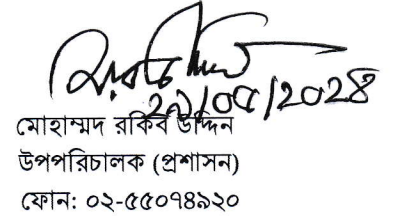 ২৯/০৫/২০২৪
মোহাম্মদ রকিব উদ্দিন
উপপরিচালক (প্রশাসন)
ফোন: ০২-৫৫০৭৪৯২০